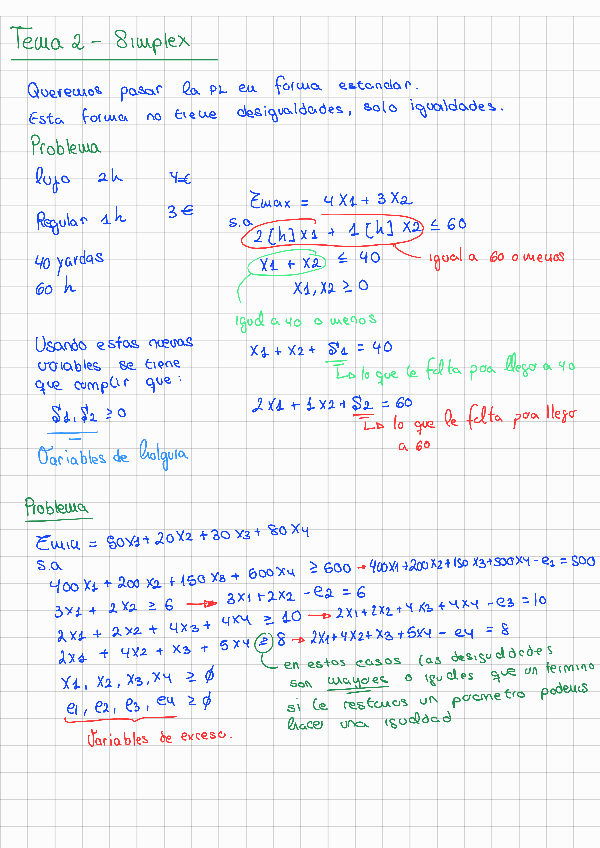 Tema 2 - Simplex
Queremos pasar la PL en forma estandar.
Esta forma no tiene desigualdades, solo igualdades.
Problema
lujo 2h 4€
Regular 1h 3€
40 yardas
60 h
Zmax = 4X1 + 3X2
s.a
2[h]X1 + 1[h]X2 ≤ 60
igual a 60 o menos
X1 + X2 ≤ 40
X1, X2 ≥ 0
igual a 40 o menos
Usando estas nuevas
variables se tiene
que cumplir que:
S1, S2 ≥ 0
Variables de holgura
X1 + X2 + S1 = 40
↳ lo que le falta poa llego a 40
2X1 + 1X2 + S2 = 60
↳ lo que le falta poa llego
a 60
Problema
Zmin = 50X1 + 20X2 + 30X3 + 80X4
s.a
400X1 + 200X2 + 150X3 + 500X4 ≥ 500 → 400X1+200X2+150X3+500X4 - e1 = 500
3X1 + 2X2 ≥ 6 → 3X1 + 2X2 - e2 = 6
2X1 + 2X2 + 4X3 + 4X4 ≥ 10 → 2X1 + 2X2 + 4X3 + 4X4 - e3 = 10
2X1 + 4X2 + X3 + 5X4 ≥ 8 → 2X1 + 4X2 + X3 + 5X4 - e4 = 8
X1, X2, X3, X4 ≥ ∅
e1, e2, e3, e4 ≥ ∅
Variables de exceso.
en estos casos las desigualdades
son mayores o iguales que un termino
si le restamos un parametro podemos
hacer una igualdad